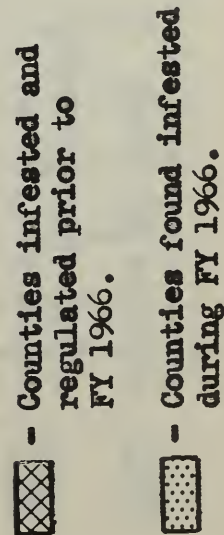 - Counties infested and
regulated prior to
FY 1966.
- Counties found infested
during FY 1966.